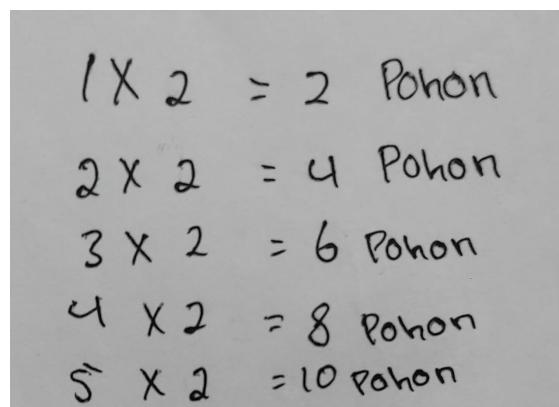 1 X 2 = 2 Pohon
2 X 2 = 4 Pohon
3 X 2 = 6 Pohon
4 X 2 = 8 Pohon
5 X 2 = 10 Pohon